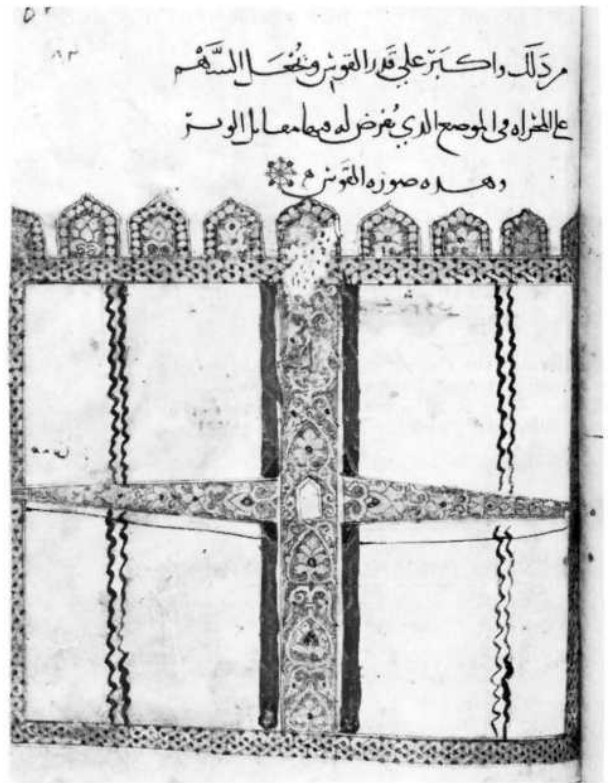 من ذلك واكبر علي قدر القوس ويجعل السهم
علي المجراه في الموضع الذي يفرض له فيها مقابل الوتر
وهذه صوره القوس